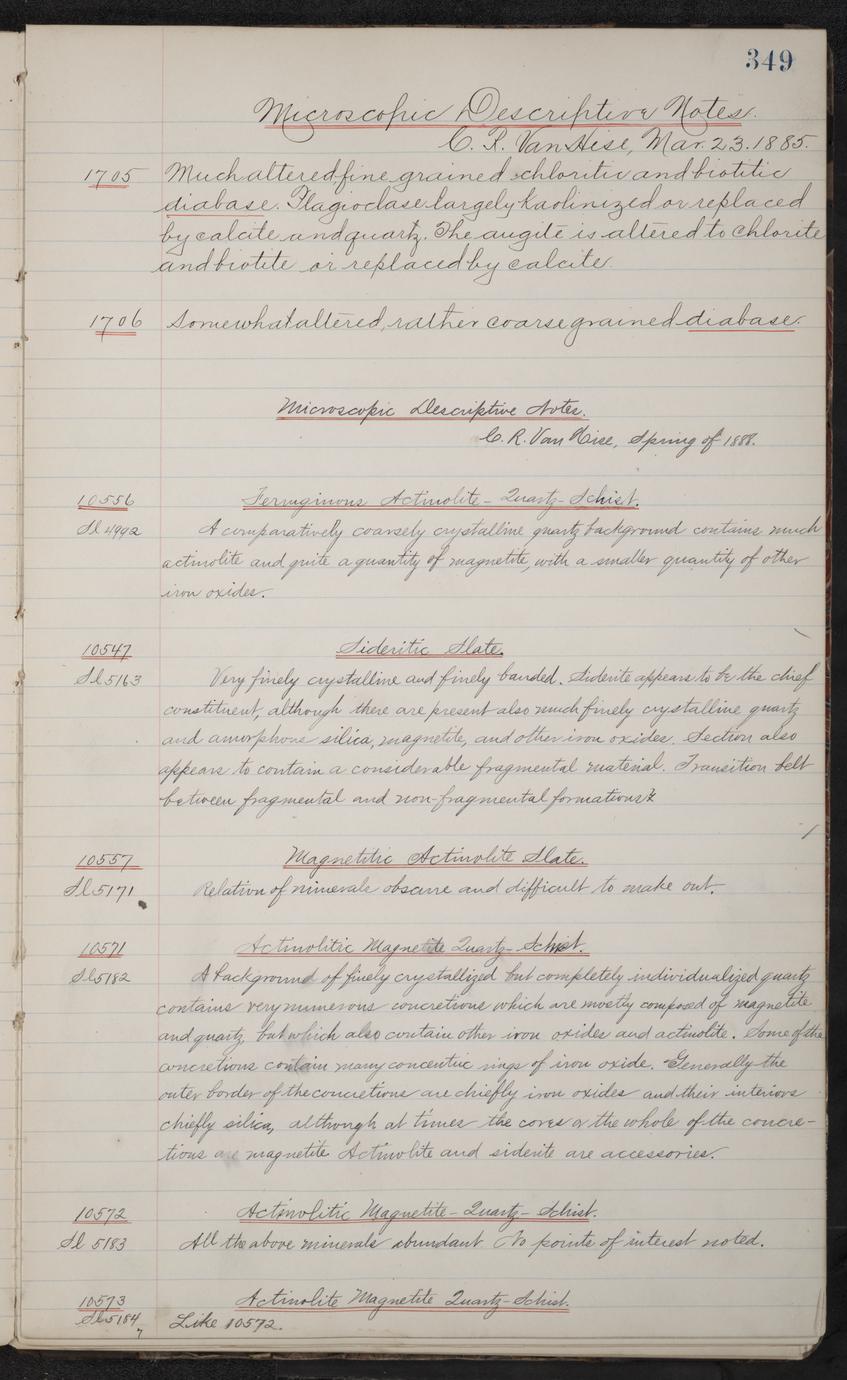 349
Microscopic Descriptive Notes.
C. R. Van Hise, Mar. 23. 1885.
1705 Much altered fine grained chloritic and biotitic
diabase. Plagioclase largely kaolinized or replaced
by calcite and quartz. The augite is altered to chlorite
and biotite or replaced by calcite.
1706 Somewhat altered, rather coarse grained diabase.
Microscopic Descriptive Notes.
C. R. Van Hise, Spring of 1888.
10556 Ferruginous Actinolite-Quartz-Schist.
Sl 4992 A comparatively coarsely crystalline quartz background contains much
actinolite and quite a quantity of magnetite, with a smaller quantity of other
iron oxides.
10547 Sideritic Slate.
Sl 5163 Very finely crystalline and finely banded. Siderite appears to be the chief
constituent, although there are present also much finely crystalline quartz
and amorphous silica, magnetite, and other iron oxides. Section also
appears to contain a considerable fragmental material. Transition belt
between fragmental and non-fragmental formations?
10557 Magnetitic Actinolite Slate.
Sl 5171 Relation of minerals obscure and difficult to make out.
10571 Actinolitic Magnetite Quartz-Schist.
Sl 5182 A background of finely crystallized but completely individualized quartz
contains very numerous concretions which are mostly composed of magnetite
and quartz but which also contain other iron oxides and actinolite. Some of the
concretions contain many concentric rings of iron oxide. Generally the
outer border of the concretions are chiefly iron oxides and their interiors
chiefly silica, although at times the cores or the whole of the concre-
tions are magnetite Actinolite and siderite are accessories.
10572 Actinolitic Magnetite-Quartz-Schist.
Sl 5183 All the above minerals abundant. No points of interest noted.
10573 Actinolite Magnetite Quartz-Schist.
Sl 5184 Like 10572.
7